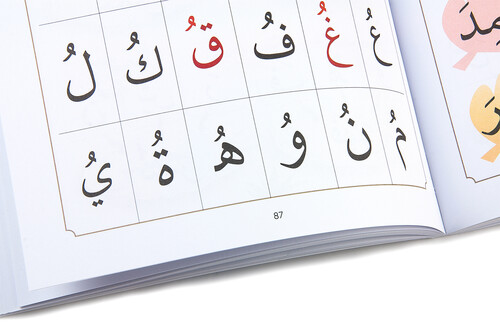 عُ غُ فُ قُ كُ لُ
مُ نُ وُ هُ ةُ يُ
87